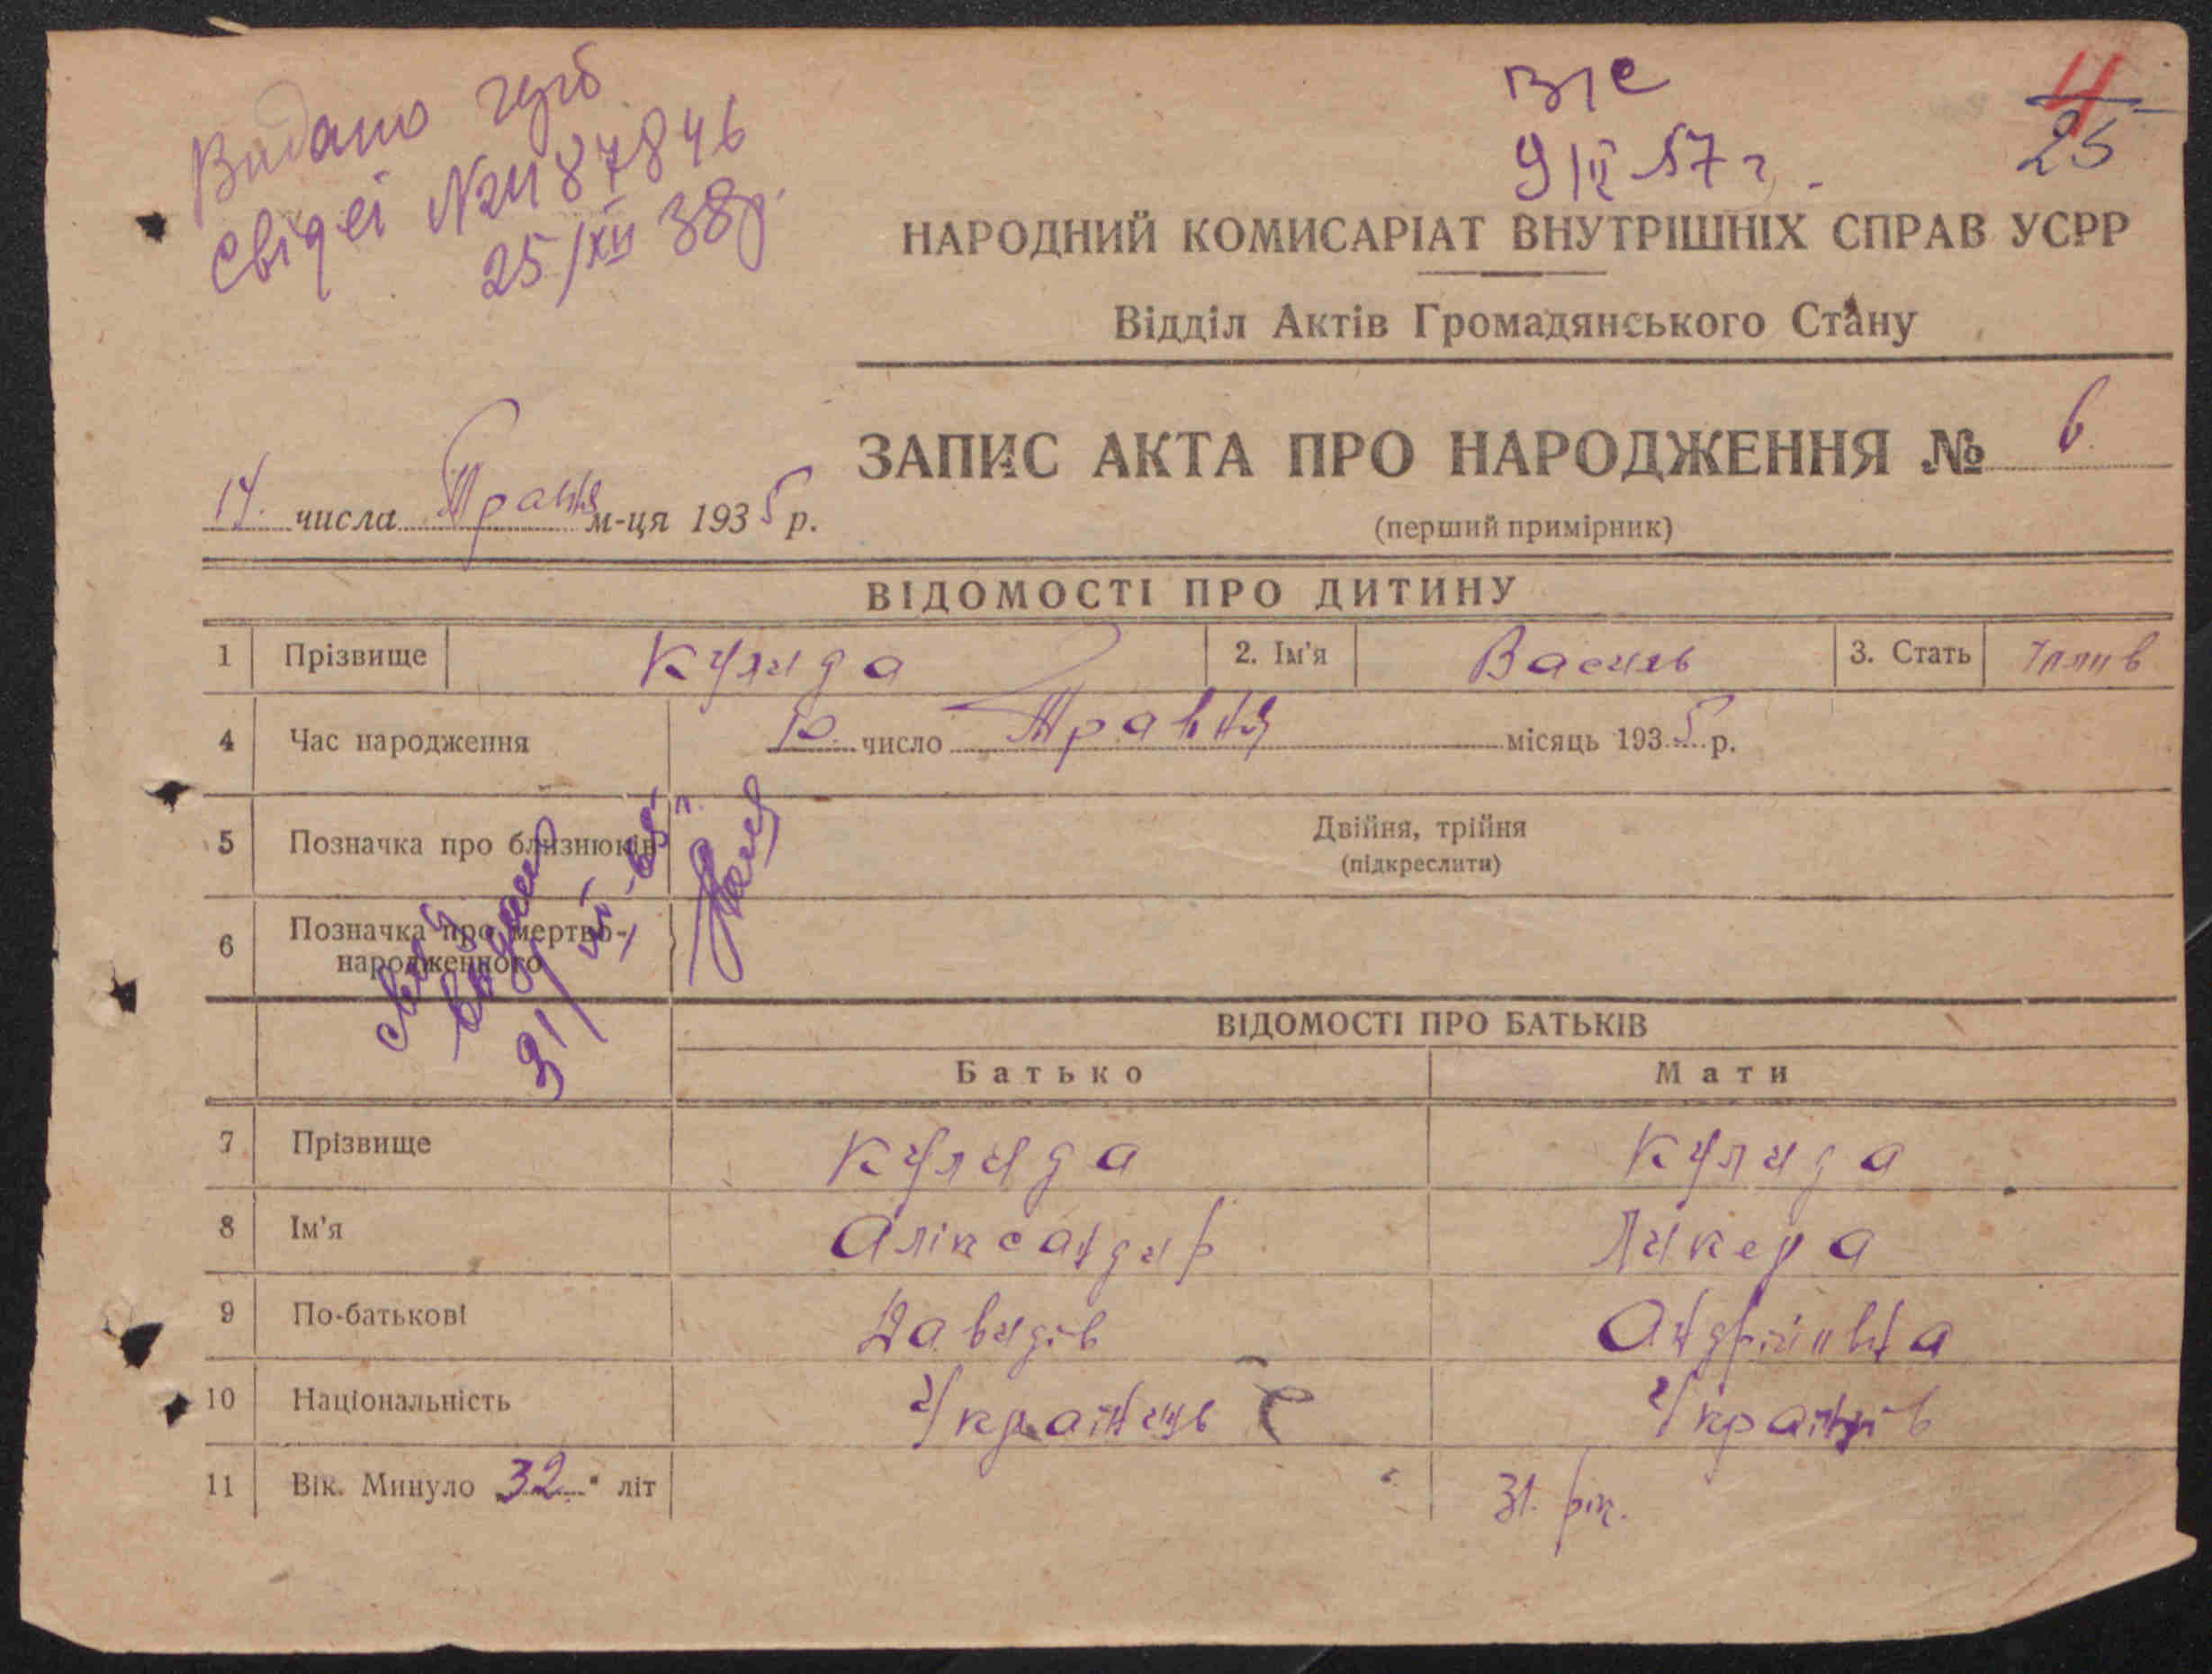 Видано
свідоі №2487846
25/XII 38р.
9/II 57 г.
4
25
НАРОДНИЙ КОМИСАРІАТ ВНУТРІШНІХ СПРАВ УСРР
Відділ Актів Громадянського Стану
ЗАПИС АКТА ПРО НАРОДЖЕННЯ № 6.
(перший примірник)
14. числа Травня м-ця 1935 р.
ВІДОМОСТІ ПРО ДИТИНУ
1 Прізвище Кулида 2. Ім'я Василь 3. Стать
4 Час народження 10. число Травня місяць 1935 р.
5 Позначка про близнюків Двійня, трійня
(підкреслити)
6 Позначка про мертво-
народженного
ВІДОМОСТІ ПРО БАТЬКІВ
Батько Мати
7 Прізвище Кулида Кулида
8 Ім'я Аліксандир Ликера
9 По-батькові Давидів
10 Національність Українець
11 Вік. Минуло 32 літ 31. рік.